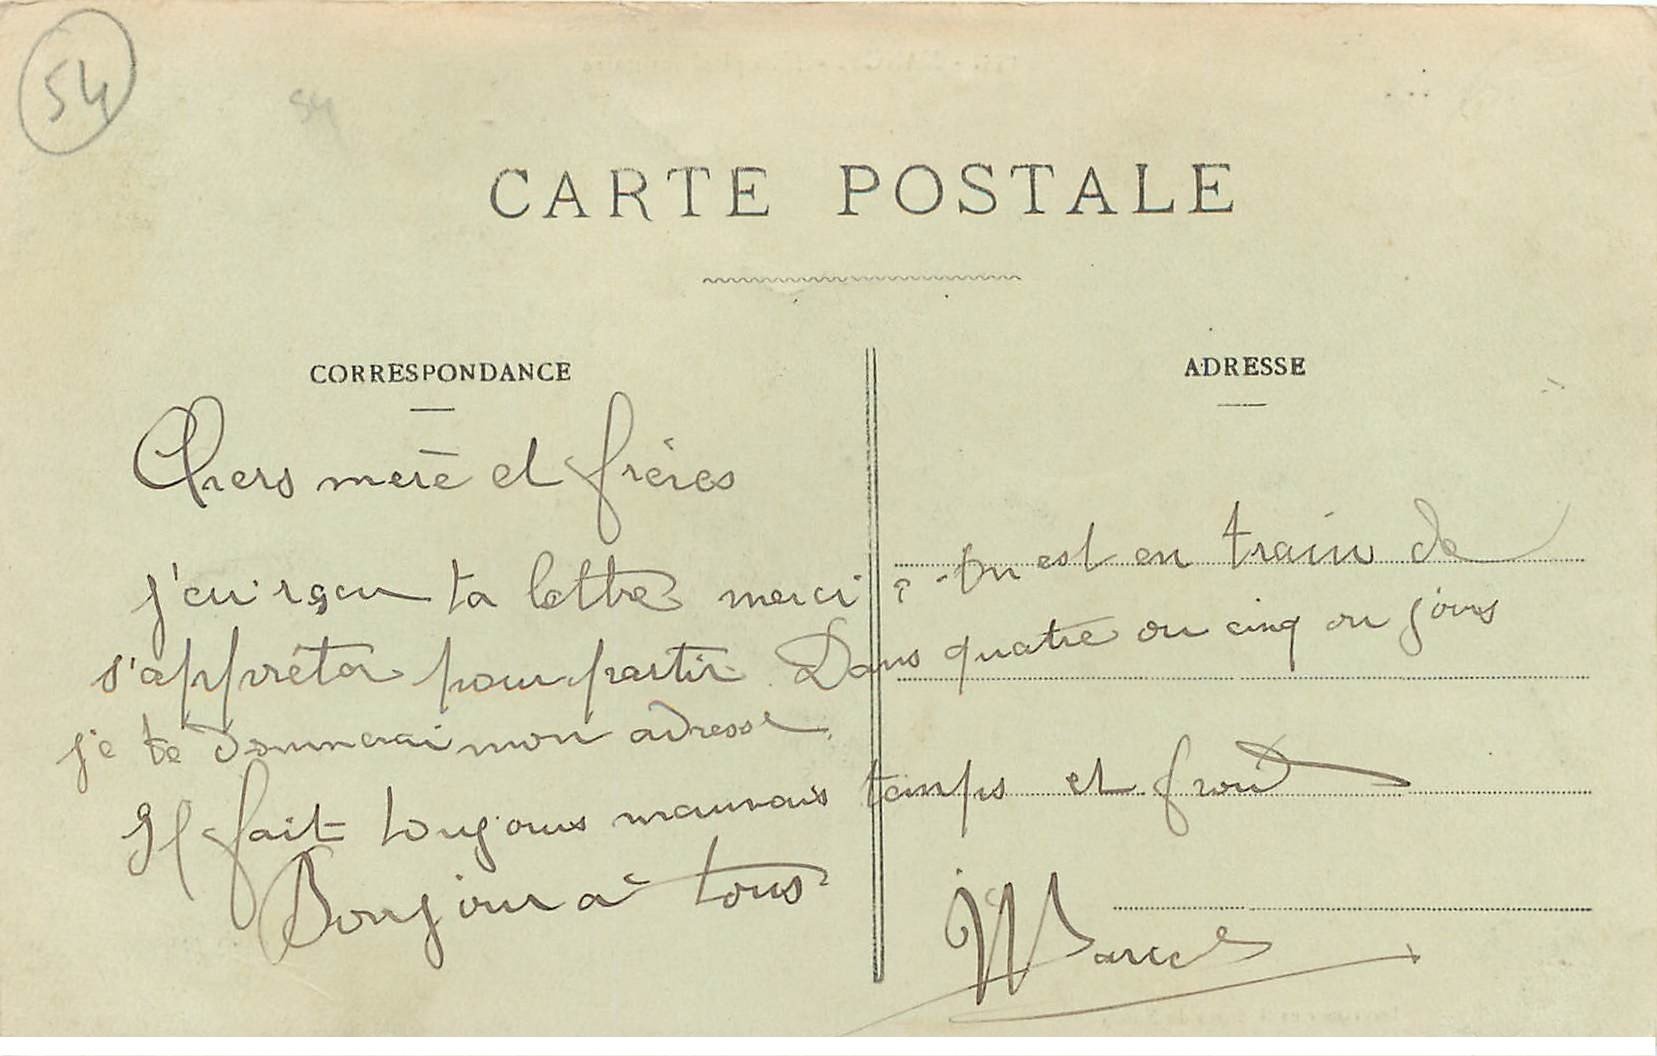 54
54
CARTE POSTALE
CORRESPONDANCE
ADRESSE
Chers mère et frères
j'ai reçu ta lettre merci. On est en train de
s'apprêter pour partir. Dans quatre ou cinq ou jours
je te donnerai mon adresse.
Il fait toujours mauvais temps et froid
Bonjour à tous
Marcel